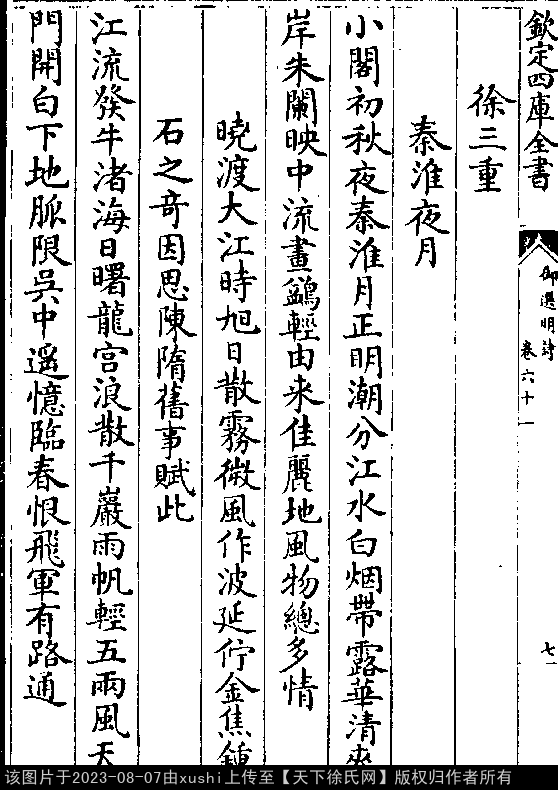 欽定四庫全書
御選明詩
卷六十一
七
徐三重
秦淮夜月
小閣初秋夜秦淮月正明潮分江水白烟帶露華清夾
岸朱闌映中流畫鷁輕由来佳麗地風物總多情
曉渡大江時旭日散霧微風作波延佇金焦鍾
石之奇因思陳隋舊事賦此
江流發牛渚海日曙龍宫浪散千巖雨帆輕五兩風天
門開白下地脈限吳中遥憶臨春恨飛軍有路通
该图片于2023-08-07由xushi上传至【天下徐氏网】版权归作者所有